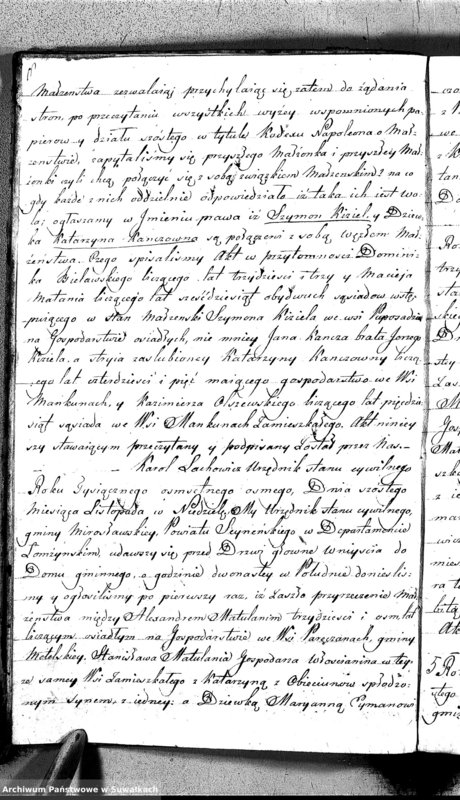 Małżenstwa zezwalaiąj przychylaiąc się zatem do żądania
stron, po przeczytaniu wszystkich wyżey wspomnionych pa,
pierow y działu szostego w tytule Kodexu Napoleona o Mał,
żenstwie, zapytaliśmy się przyszłego Małżonka i przyszłey Mał
żonki czyli chcą połączyć się z sobą związkiem Małżenskim? na co
gdy każde z nich oddzielnie odpowiedziało iż taka ich iest wo
la; ogłaszamy w Imieniu prawa iż Szymon Kiziel, y Dziew
ka Katarzyna Kanczowna są połączeni z sobą węzłem Mał,
żeństwa. Czego spisaliśmy Akt w przytomności Domini,
ka Bielawskiego liczącego lat trzydzieści i trzy y Macieja
Matania liczącego lat sześćdziesiąt obydwuch sąsiadow wstę
puiącego w stan Małżenski Szymona Kiziela we wsi
na Gospodarstwie osiadłych, nie mniey Jana Kancza brata
Kiziela, a stryia zaslubioney Katarzyny Kanczowny liczą
cego lat czterdzieści i pięć maiącego gospodarstwo we Wsi
Mankunach, y Kazimierza Olszewskiego liczącego lat pięćdzie
siąt sąsiada we Wsi Mankunach Zamieszkałego. Akt niniey
szy stawaiącym przeczytany y podpisany Został przez Nas.
Karol Lachowicz Urzędnik stanu cywilnego
Roku Tysiącznego osmsetnego osmego, Dnia szostego
Miesiąca Listopada w Niedzielę, My Urzędnik stanu cywilnego,
gminy Mirosławskiey, Powiatu Seyneńskiego w Departamencie
Łomżynskim, udawszy się przed Drzwi głowne wniyścia do
Domu gminnego, o godzinie dwonastey w Południe donieśli,
my y ogłosiliśmy po pierwszy raz, iż Zaszło przyrzeczenie Mał
żenstwa między Alexandrem Matulanim trzydzieści i osm lat
liczącym osiadłym na Gospodarstwie we Wsi gminy
Metelskiey. Stanisława Matulania Gospodarza Włościanina w tey,
że samey Wsi Zamieszkałego z Katarzyną z spłodzo,
nym synem, z iedney: a Dziewką Maryanną Cymanow
Archiwum Państwowe w Suwałkach